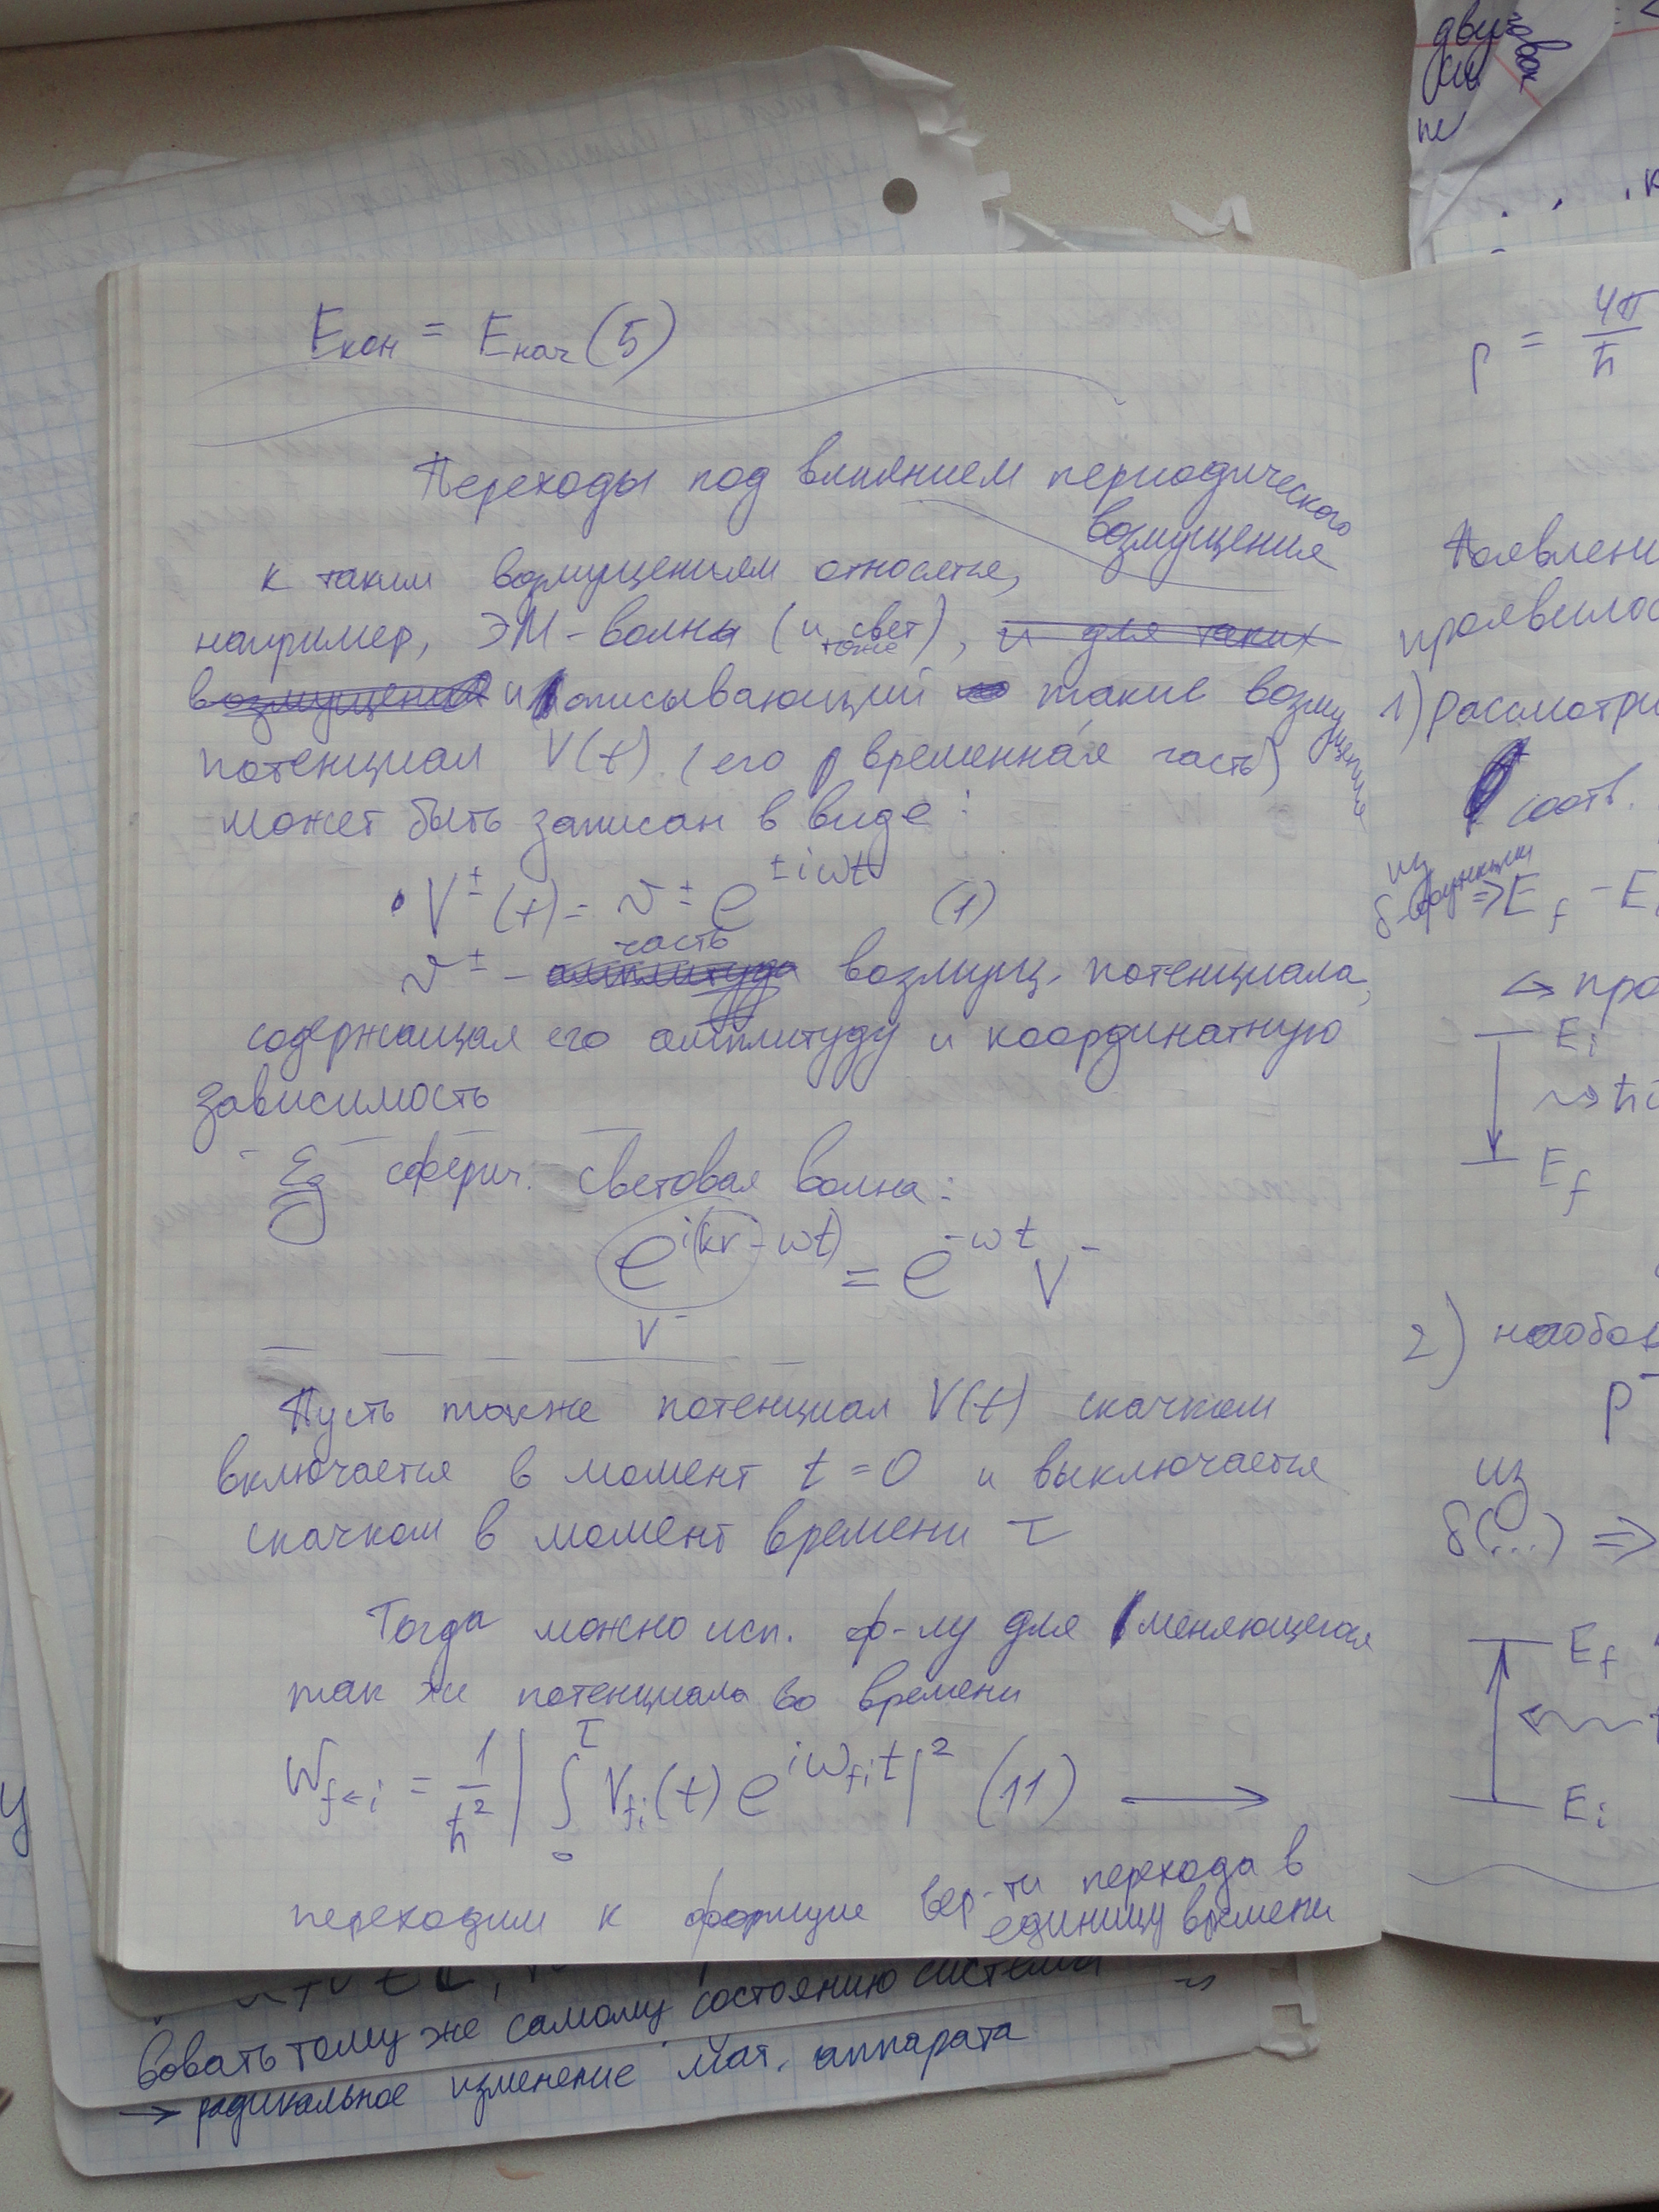 Eкон = Eнач (5)
Переходы под влиянием периодического
возмущения
к таким возмущениям относятся,
например, ЭМ-волны (и свет тоже), и для таких
возмущений и описывающий такие возмущения
потенциал V(t) (его временна́я часть)
может быть записан в виде:
• V^±(t) = v^± e^{±iωt} (1)
часть
v^± - амплитуда возмущ. потенциала,
содержащая его амплитуду и координатную
зависимость
Eg сферич. световая волна:
e^{i(kr-ωt)} = e^{-ωt} V^-
V^-
Пусть также потенциал V(t) скачком
включается в момент t = 0 и выключается
скачком в момент времени τ
Тогда можно исп. ф-лу для меняющегося
так же потенциала во времени
W_{f←i} = 1/ħ² | ∫_0^τ V_{fi}(t) e^{iω_{fi}t} |² (11) ⟶
переходим к формуле вер-ти перехода в
единицу времени
p = 4π/ħ
Появлени
проявилос
1) рассмотри
соотв.
из
δ-функции ⇒ E_f - E
↪ про
E_i
⇝ ħ
E_f
2)
p^-
из
δ(...) ⇒
E_f
E_i
вовать тому же самому состоянию системы
→ радикальное изменение мат. аппарата